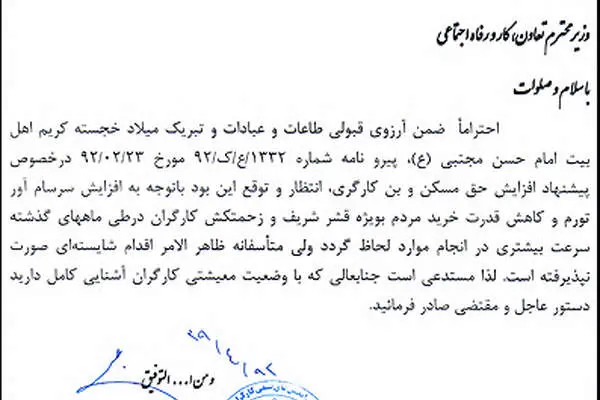 وزیر محترم تعاون، کار و رفاه اجتماعی
با سلام و صلوات
احتراماً ضمن آرزوی قبولی طاعات و عبادات و تبریک میلاد خجسته کریم اهل
بیت امام حسن مجتبی (ع)، پیرو نامه شماره ۱۳۳۲/ع/ک/۹۲ مورخ ۹۲/۰۲/۲۳ درخصوص
پیشنهاد افزایش حق مسکن و بن کارگری، انتظار و توقع این بود باتوجه به افزایش سرسام آور
تورم و کاهش قدرت خرید مردم بویژه قشر شریف و زحمتکش کارگران درطی ماههای گذشته
سرعت بیشتری در انجام موارد لحاظ گردد ولی متأسفانه ظاهر الامر اقدام شایسته‌ای صورت
نپذیرفته است. لذا مستدعی است جنابعالی که با وضعیت معیشتی کارگران آشنایی کامل دارید
دستور عاجل و مقتضی صادر فرمائید.
ومن ا... التوفیق